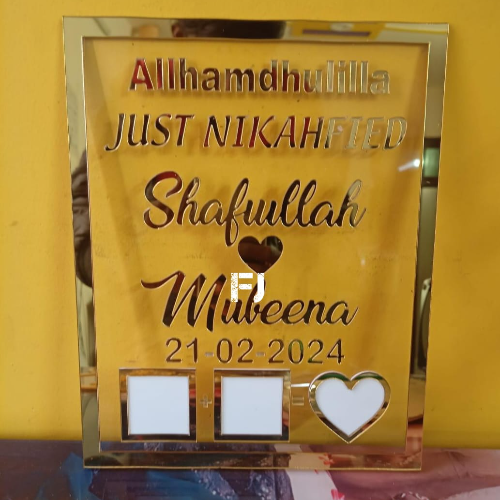 Allhamdhulilla
JUST NIKAHFIED
Shafiullah
Mubeena
FJ
21-02-2024
+ =